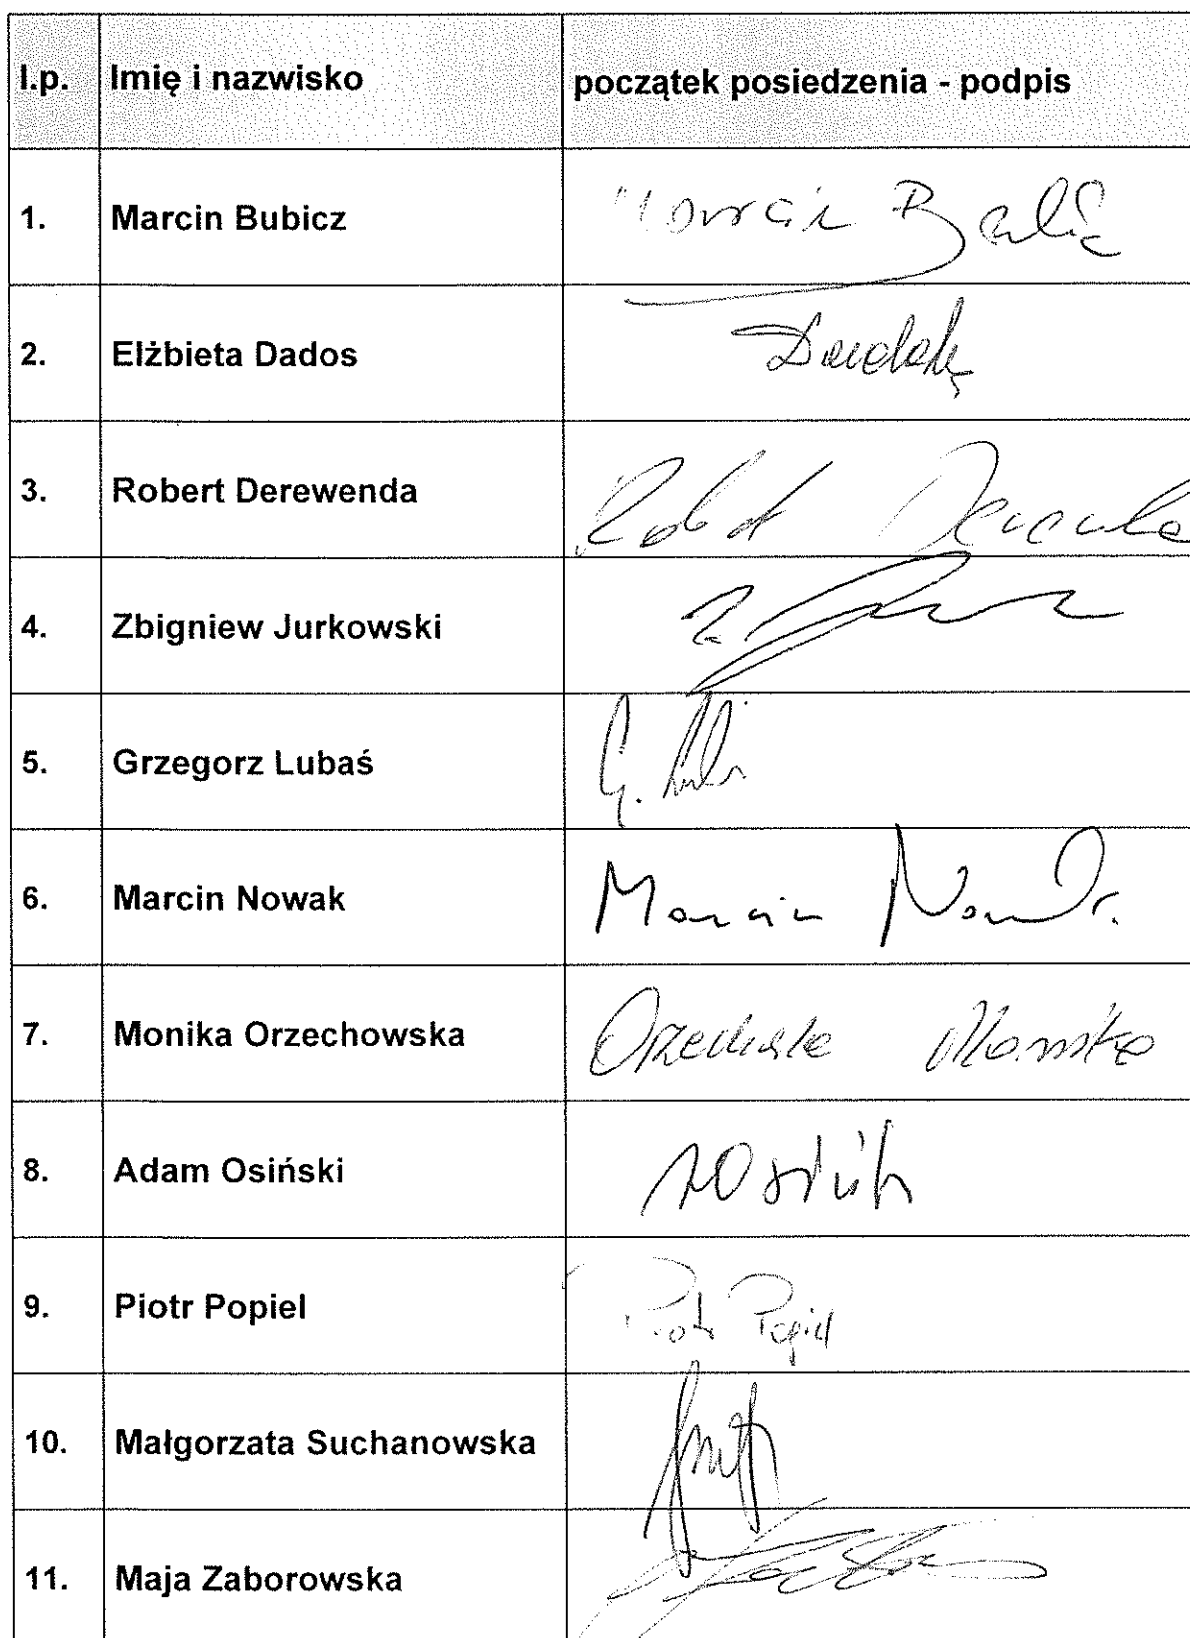 l.p. Imię i nazwisko początek posiedzenia - podpis
1. Marcin Bubicz Marcin
2. Elżbieta Dados
3. Robert Derewenda
4. Zbigniew Jurkowski
5. Grzegorz Lubaś G.
6. Marcin Nowak Marcin Nowak
7. Monika Orzechowska Orzechowska Monika
8. Adam Osiński
9. Piotr Popiel Piotr Popiel
10. Małgorzata Suchanowska
11. Maja Zaborowska